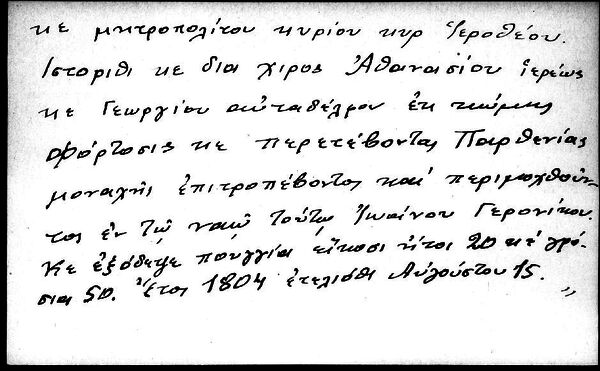 κε μητροπολίτου κυρίου κυρ Ἱεροθέου.
Ἱστορίθι κε δια χιρος Ἀθανασίου ἱερέως
κε Γεωργίου αὐταδέλφου ἐκ κώμης
Φόρτοσις κε περετέβοντας Παρθενίας
μοναχῆς ἐπιτροπέβοντος καί περιμοχθοῦν-
τος ἐν τῶ ναῶ τοῦτω Γερονίκου.
Κε ἐξόδεψε πουγγία εἴκοσι ἤτοι 20 κέ γρό-
σια 50. Ἔτος 1804 ἐτελισθι Αὐγούστου 15.